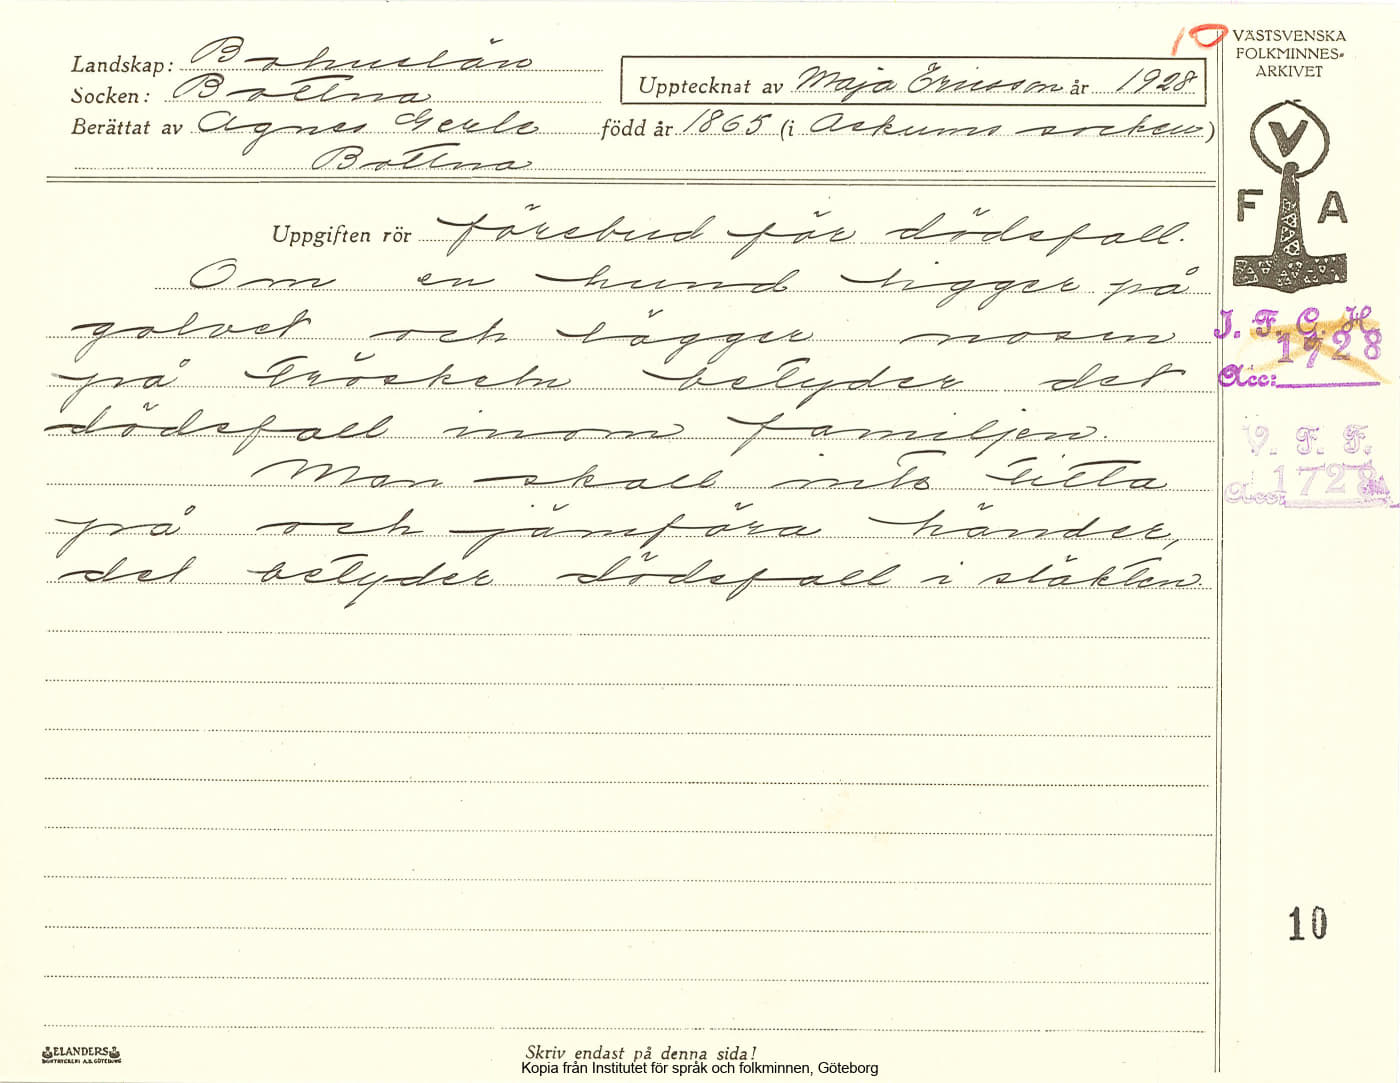 10
VÄSTSVENSKA
FOLKMINNES-
ARKIVET
Landskap: Bohuslän
Upptecknat av Maja Ericsson år 1928
Socken: Bottna
Berättat av Agnes Gerle född år 1865 (i Askums socken)
Bottna
V
F A
Uppgiften rör förebud för dödsfall.
Om en hund ligger på
golvet och lägger nosen
på tröskeln betyder det
dödsfall inom familjen.
Man skall inte titta
på och jämföra händer,
det betyder dödsfall i släkten.
J. F. G. H.
1728
Acc:
V. F. F.
1728
Acc:
10
ELANDERS
BOKTRYCKERI A.B. GÖTEBORG
Skriv endast på denna sida!
Kopia från Institutet för språk och folkminnen, Göteborg